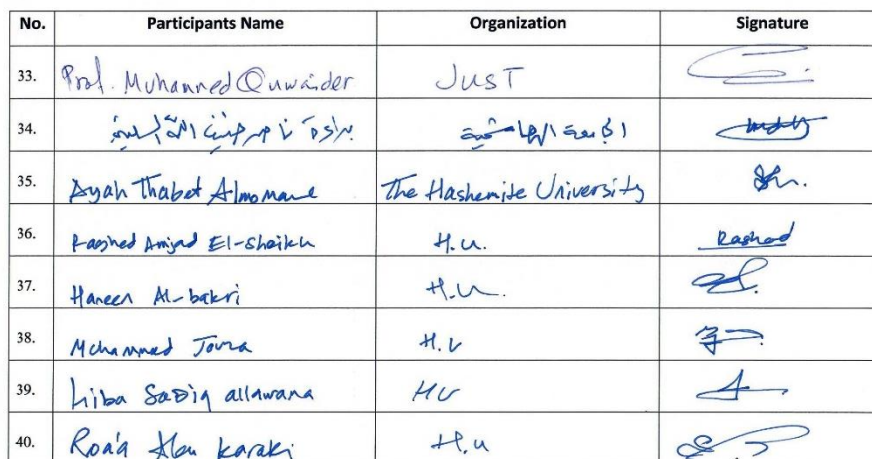 No. Participants Name Organization Signature
33. Prof. Muhanned Quwaider JUST
34. الجامعة الهاشمية
35. Ayah Thabet Almomane The Hashemite University
36. Rashed Amjad El-Sheikh H.U. Rashed
37. Haneen Al-bakri H.U.
38. Mohammed H.U
39. Hiba Sadiq allawama HU
40. Roa'a Abu Karaki H.u